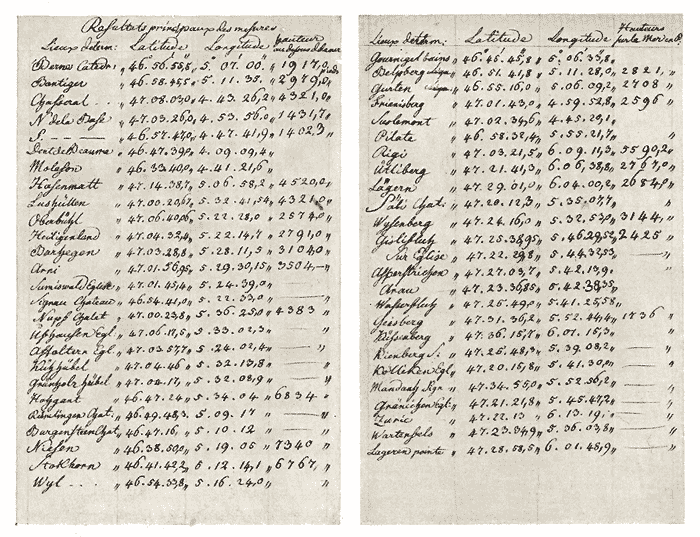 Resultats principaux des mesures
Lieux determ: Latitude Longitude hauteur
au dessus de la mer
Berne Cathedr: " 46.56.55,8 " 5°07.00" " 1917,0
Bantiger " 46.58.455 " 5.11.35. " 2979,0
Chasseral . . " 47.08.030 " 4.43.26,2 " 4321,0
N. de la Base " 47.03.26,0 " 4.53.56,0 " 1431,7
S. — — " 46.57.47,0 " 4.47.41,9 " 1402,3
" 46.47.39,0 " 4.09.09,4 "
Moleson " 46.33.40,0 " 4.41.21,6 "
Hasenmatt " 47.14.38,7 " 5.06.58,2 " 4520,0 "
" 47.00.20,6 " 5.32.41,54 " 4321,0 "
Oberbühl " 47.06.40,06 " 5.22.28,0 " 2574,0 "
Heiligenland " 47.04.32,4 " 5.22.14,7 " 2791,0 "
" 47.03.28,8 " 5.28.11,5 " 3104,0 "
Arni " 47.01.56,95 " 5.29.30,15 " 3504,— "
Sumiswald Eglise " 47.01.45,4 " 5.24.39,0 "
Signau Chateau " 46.54.41,0 " 5.22.33,0 " — "
Napf Chalet " 47.00.23,8 " 5.36.25,0 " 4383 "
Ufhausen Egl. " 47.06.17,5 " 5.33.02,3 " — "
Affoltern Egl. " 47.03.57,7 " 5.24.02,4 " — "
" 47.04.46 " 5.32.13,8 " — "
Grünholz hübel " 47.04.17 " 5.32.08,9 " — "
Hohgant " 46.47.24 " 5.34.04 " 6834 "
Rümlingen Chat: " 46.49.48,3 " 5.09.17 " — "
Burgenstein Chat " 46.47.16 " 5.10.12 " — "
Niesen " 46.38.50,0 " 5.19.05 " 7340 "
Stokhorn " 46.41.42,2 " 5.12.14,1 " 6767 "
Wyl . . . . " 46.54.33,8 " 5.16.24,0 " "
Lieux determ: Latitude Longitude Hauteurs
sur la Mer en P.
Gournigel bains " 46°45'45,8 " 5.06.33,8 "
Belpberg " 46.51.41,8 " 5.11.28,0 " 2821 "
Gurten " 46.55.16,0 " 5.06.09,2 " 2708 "
Frienisberg " 47.01.43,0 " 4.59.52,8 " 2596 "
" 47.02.34,6 " 4.45.29,1 "
Pilate " 46.58.32,4 " 5.55.21,7 " "
Rigi " 47.03.21,5 " 6.09.11,3 " 5590,2 "
Utliberg " 47.21.41,3 " 6.06.38,8 " 2767,0 "
Lägern " 47.29.01,0 " 6.04.00,2 " 2654,0 "
Chat: " 47.20.12,3 " 5.35.07,7 " "
Wysenberg " 47.24.16,0 " 5.32.53,0 " 3144 "
Gislifluh " 47.25.34,95 " 5.46.29,52 " 2425 "
Sur Eglise " 47.22.29,8 " 5.44.32,53 " — "
Asperstrichen " 47.27.03,7 " 5.42.13,9 " "
Arau " 47.23.36,85 " 5.42.38,35 "
Wasserfluh " 47.25.49,0 " 5.41.25,58 "
Geisberg " 47.31.36,2 " 5.52.44,4 " 1736 "
Küssenberg " 47.36.15,7 " 6.01.15,3 "
Kienberg S. " 47.26.48,3 " 5.39.08,2 " — "
Kölliken Egl. " 47.20.15,8 " 5.41.30,0 " — "
Mandach " 47.34.55,0 " 5.52.56,2 " — "
Gränichen Egl: " 47.21.21,8 " 5.45.47,2 " — "
Zuric " 47.22.13 " 6.13.19 " "
Wartenfels " 47.23.34,9 " 5.36.03,8 " — "
Lageren pointe " 47.28.58,5 " 6.01.45,9 " — "